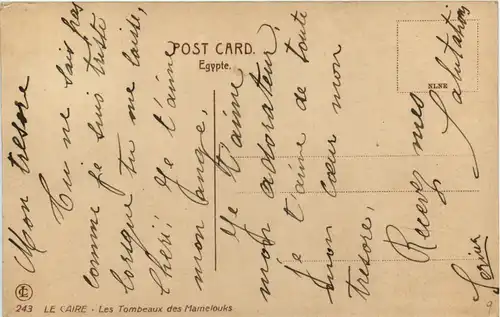 POST CARD.
Egypte.
NLNR
Mon tresore
Tu ne sais pas
comme je suis triste
lorsque tu me laisse,
Cheri, Je t'aime
mon ange,
Je t'aime
mon adorateur,
Je t'aime de toute
mon cœur mon
tresore,
Recevez mes
Salutations
243 LE CAIRE - Les Tombeaux des Mamelouks
9